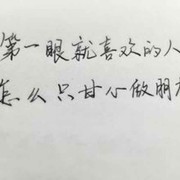 第一眼就喜欢的人
怎么只甘小做朋